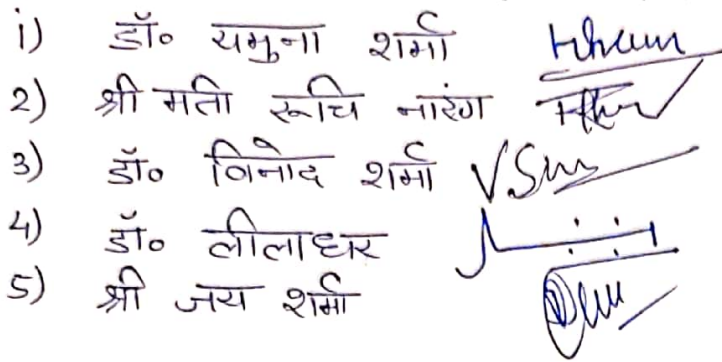 i) डॉ० यमुना शर्मा
2) श्री मती रूचि नारंग
3) डॉ० विनोद शर्मा
4) डॉ० लीलाधर
5) श्री जय शर्मा